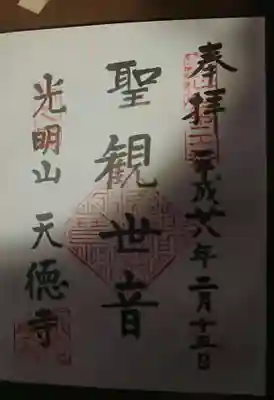 奉拝 平成廿八年二月十五日
聖観世音
光明山 天徳寺